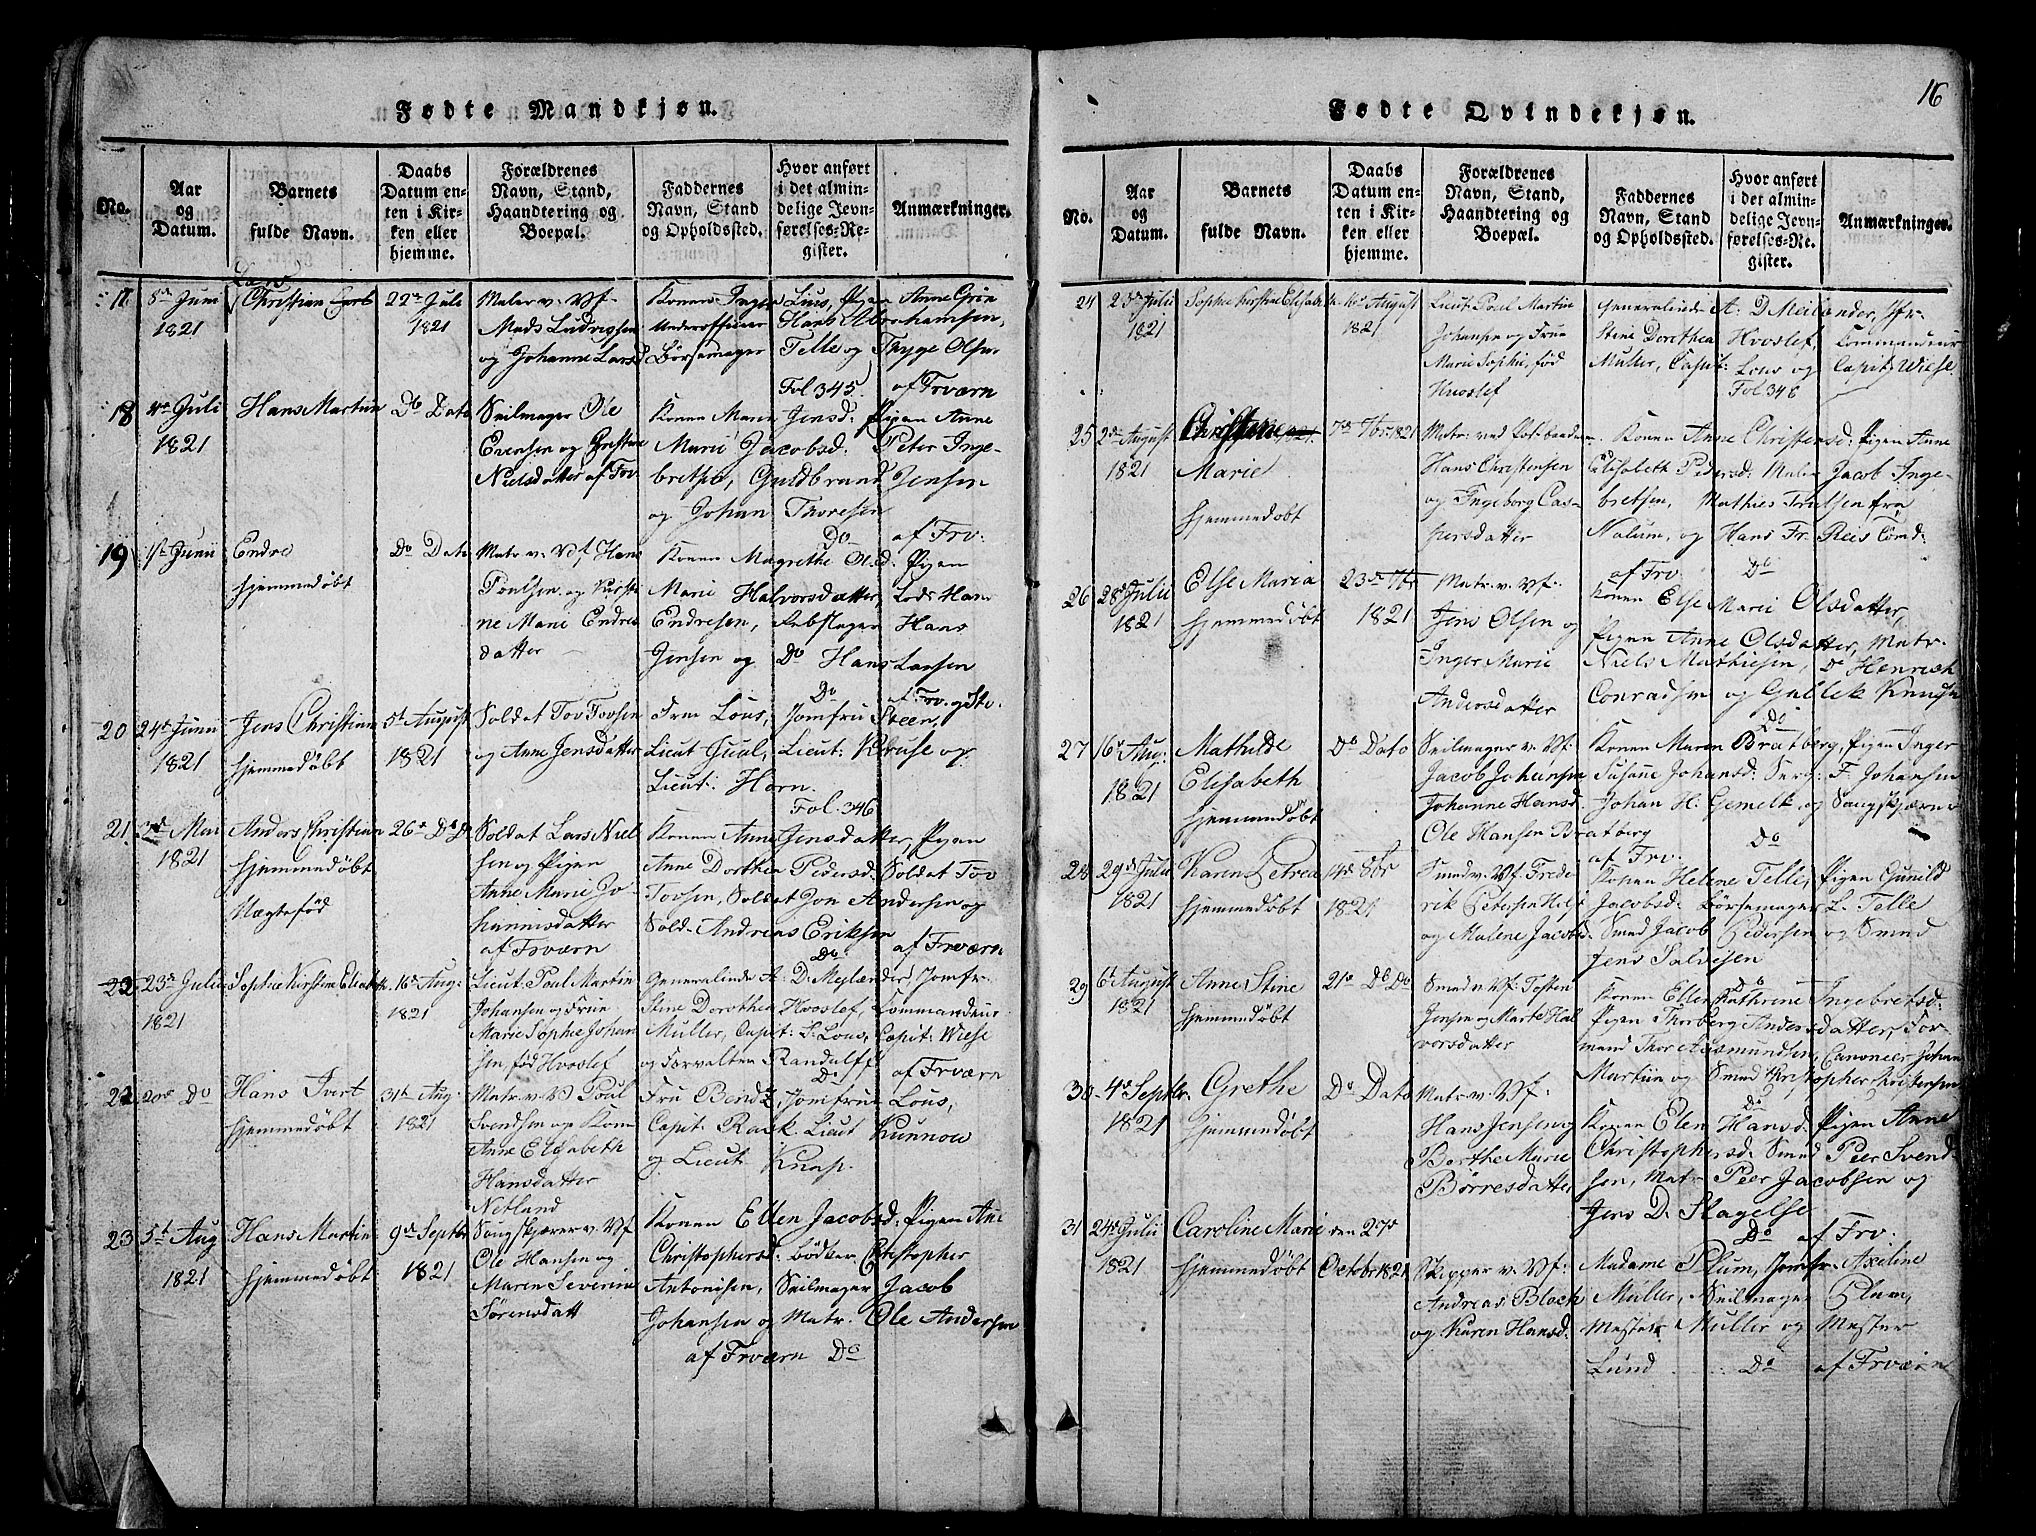 16
Fødte Mandkjøn.
No.
Aar
og
Datum.
Barnets
fulde Navn.
Daabs
Datum en-
ten i Kir-
ken eller
hjemme.
Forældrenes
Navn, Stand,
Haandtering og
Boepæl.
Faddernes
Navn, Stand
og Opholdssted.
Hvor anført
i det almin-
delige Jevn-
førelses-Re-
gister.
Anmærkninger.
17
8de Juni
1821
Lars
Christian
22de Juli
1821
Matr v. Vf.
Mads Ludvigsen
og Johanne Larsd
Konen Inger Lius, Pigen Anne Grøn
Underofficeer Hans Abrahamsen,
Børsemager Telle og Thyge Olsen
Fol 345. af Frværn
18
Juli
1821
Hans Martin
Do Dato
Seilmager Ole
Evensen og
Nielsdatter af Frv
Konen Maren Jensd: Pigen Anne
Marie Jacobsd: Peter Inge-
bretsen, Guldbrand Jensen
og Johan Thoresen
Do af Frv:
19
Junii
1821
Endre
hjemmedøbt
Do Dato
Matr v: Vf. Hans
Poulsen og Kirsti-
ne Marie Endres
datter
Konen Magrethe Olsd: Pigen
Marie Halvorsdatter, Lods Hans
Endresen, Rebslager Hans
Jensen og Do Hans Larsen
Do af Frv.
20
24de Junii
1821
Jens Christian
hjemmedøbt
5te August
1821
Soldat Tov Tovsen
og Anne Jensdatter
Frue Lous, Jomfru Steen,
Lieut Juul, Lieut: Kruse og
Lieut: Horn.
Fol. 346
21
3de Mai
1821
Anders Christian
hjemmedøbt
Uægtefød
26de Do
Soldat Lars Niel
sen og Pigen
Anne Marie Jo-
hannisdatter
af Frværn
Konen Anne Jensdatter, Pigen
Anne Dorthea Pedersd: Soldat Tov
Tovsen, Soldat Jon Andersen og
Sold- Andreas Eriksen
Do af Frværn
22
23de Julii
1821
Sophie Kirstine Elisabeth
16de Aug:
1821
Lieut: Poul Martin
Johansen og Frue
Marie Sophie Johan
sen, fød Hvoslef
Generalinde A. D. Mejlænder, Jomfr.
Stine Dorothea Hvoslef, Commandeur
Müller, Capit: L. Lous, Capit: Wiese
og Forvalter Randulff
Do af Frværn
22
20de Do
Hans Ivert
hjemmedøbt
31te Aug:
1821
Matr v: V Poul
Svendsen og Kone
Anne Elisabeth
Hansdatter
Netland
Fru Bendz, Jomfrue Lous,
Capit: Rack. Lieut Kunnow
og Lieut Knap.
23
5te Aug
1821
Hans Martin
hjemmedøbt
9de Septbr
1821
Saugskjærer v. Vf
Ole Hansen og
Maren Severine
Sørensdatt
Konen Ellen Jacobsd: Pigen Ane
Christophersd: Bødker Christopher
Antonisen, Seilmager Jacob
Johansen og Matr. Ole Andersen
af Frværn Do
Fødte Qvindekjøn.
No.
Aar
og
Datum.
Barnets
fulde Navn.
Daabs
Datum en-
ten i Kir-
ken eller
hjemme.
Forældrenes
Navn, Stand,
Haandtering og
Boepæl.
Faddernes
Navn, Stand
og Opholdssted.
Hvor anført
i det almin-
delige Jevn-
førelses-Re-
gister.
Anmærkninger.
24
23de Julii
1821
Sophie Kirstine Elisabeth
16de August
1821
Lieut: Poul Martin
Johansen og Frue
Marie Sophie, fød
Hvoslef
Generalinde A. D Meilænder, Jfr.
Stine Dorothea Hvoslef, Commandeur
Müller, Capit: Lous og Capit: Wiese
Fol 346
25
2den August
1821
Christine
Marie
hjemmedøbt
7br 1821
Matr: ved
Hans Christensen
og Ingeborg Cas-
persdatter
Konen Anne Christensd: Pigen Anne
Elisabeth Pedersd: Maler Jacob Inge-
bretsen, Mathies Trulsen fra
Nalum, og Hans Fr. Reis Comd:
af Frv. Do
26
28de Julii
1821
Else Maria
hjemmedøbt
23de 7br
1821
Matr. v. Vf:
Jens Olsen og
Inger Marie
Andersdatter
Konen Else Marie Olsdatter,
Pigen Anne Olsdatter, Matr.
Niels Mathiesen, Do Henrich
Conradsen og Gullek Knuds
Do
27
16de Aug:
1821
Mathilde
Elisabeth
hjemmedøbt
Do Dato
Seilmager v: Vf:
Jacob Johansen
Johanne Hansd.
Konen Maren Bratberg, Pigen Inger
Susane Johansd: Serg: F. Johansen
Johan H. Gemelk og Saugskjærer
Ole Hansen Bratberg
af Frv. Do
28
29de Julii
1821
Karen Petrea
hjemmedøbt
14de 8br
1821
Smed v. Vf. Frede
rik Petersen
og Malene Jacobsd
Konen Helene Telle, Pigen Gunild
Jacobsd: Børsemager L. Telle
Smed Jacob Pedersen og Smed
Jens Salvesen
Do
29
6te August
1821
Anne Stine
hjemmedøbt
21de Do Do
Smed v. Vf: Tosten
Jensen og Marte Hal
vorsdatter
Konen Ellen Kathrine Ingebretsd:
Pigen Thorberg Andersdatter, For-
mand Thor Aasmundsen, Canoneer Johan
Martiin og Smed Christopher Christersen
Do
30
4de Septbr.
1821
Grethe
hjemmedøbt
Do Dato
Matr v: Vf:
Hans Jensen og
Berthe Marie
Børresdatter
Konen Elen Hansd: Pigen Anne
Christophersd: Smed Peer Svend
sen, Matr Peer Jacobsen og
Jens D. Slagelse
Do af Frv:
31
24de Julii
1821
Caroline Marie
hjemmedøbt
den 27de
Octobr 1821
Skipper v: Vf:
Andreas Bloch
og Karen Hansd.
Madame Plum, Jomfr. Axeline
Müller, Seilmager Plum,
Mester Müller og Mester
Lund Do af Frværn